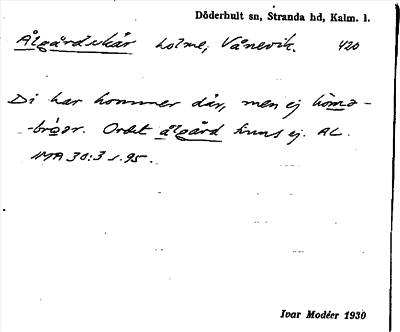 Döderhult sn, Stranda hd, Kalm. l.
Ålgårdsskär holme, Vånevik. 420
Di har kommer där, men ej
Ordet ålgård finns ej. AL.
IMA 30:3 s. 95.
Ivar Modéer 1930